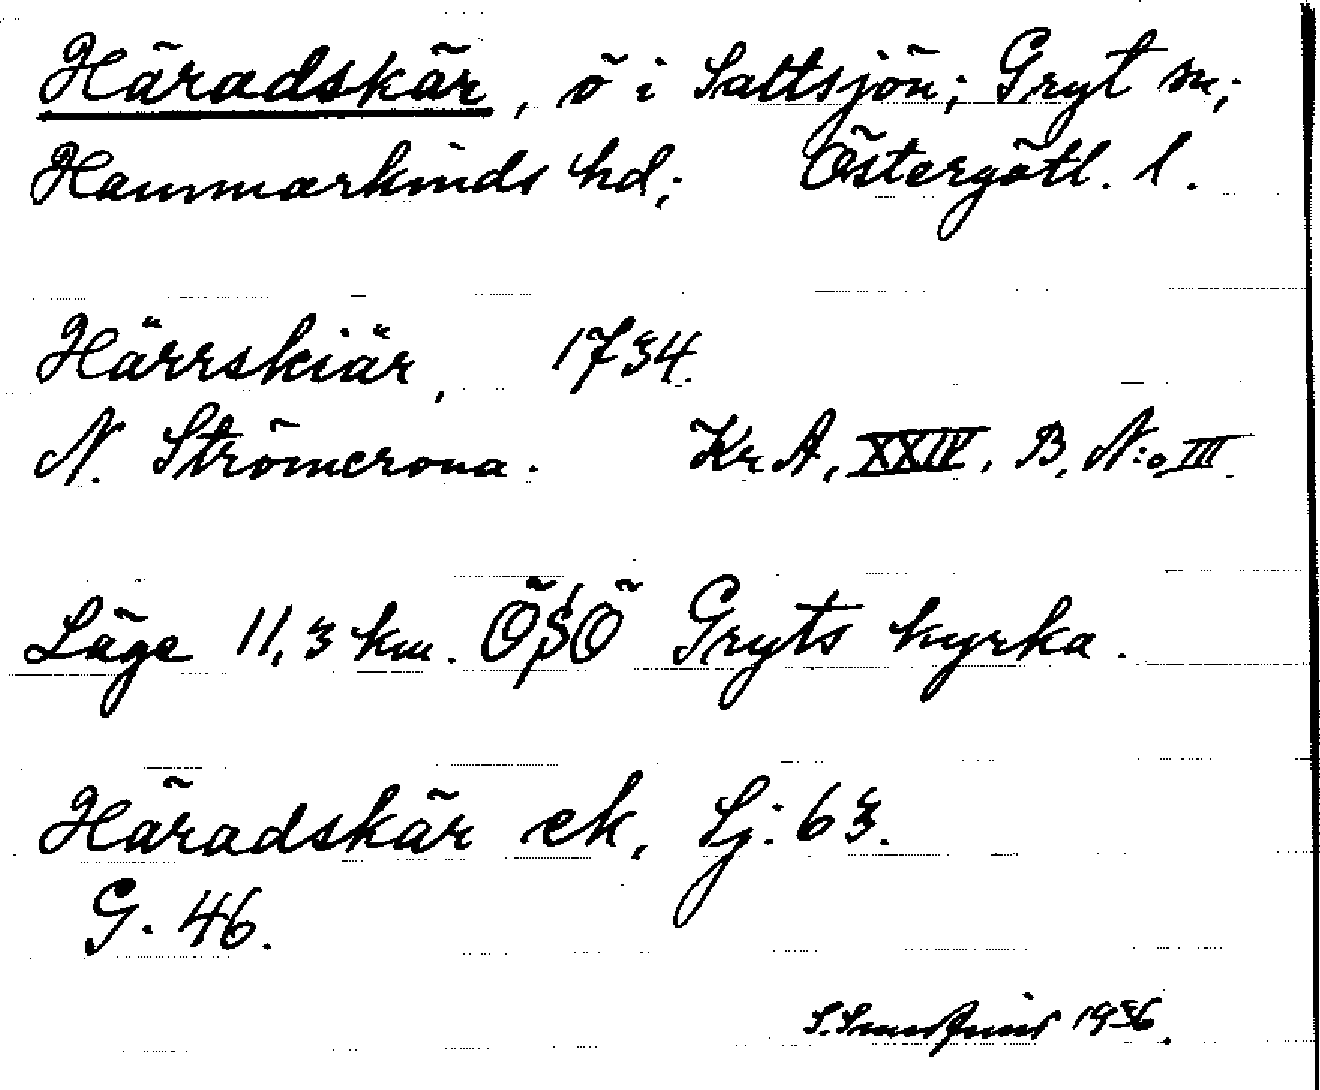 Häradskär, ö i Saltsjön; Gryt sn;
Hammarkinds hd; Östergötl. l.
Härrskiär, 1734.
N. Strömcrona. Kr. A, XXIV, B, N:o III.
Läge 11,3 km. ÖSÖ Gryts kyrka.
Häradskär ek, Lj: 63.
G. 46.
1936.